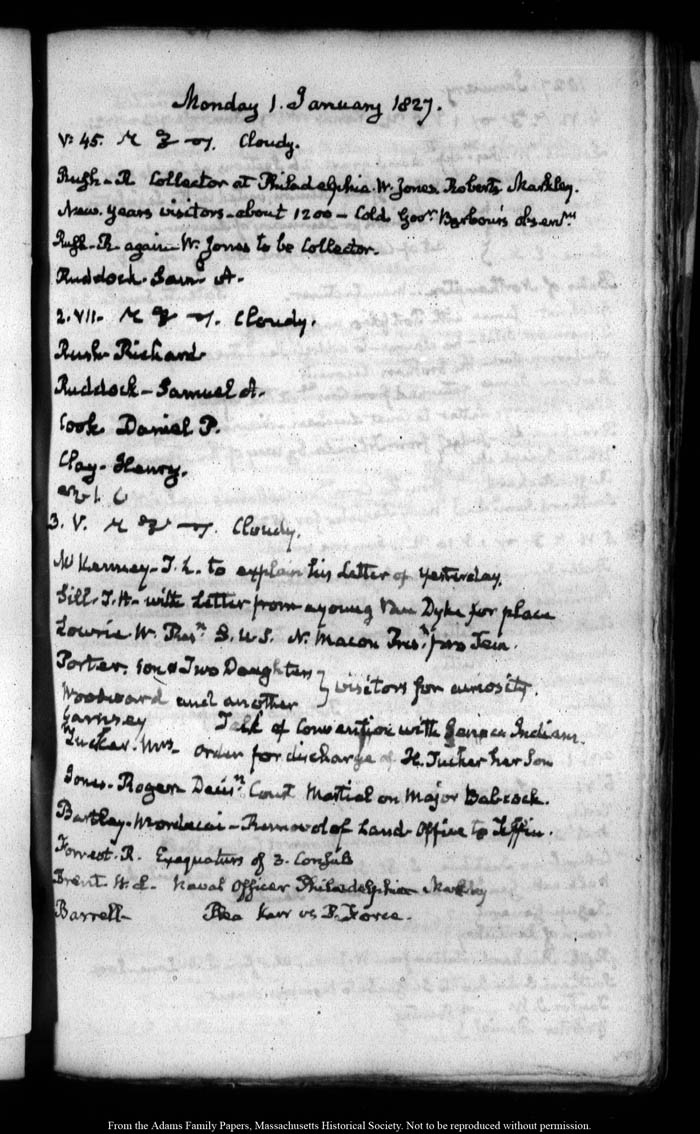 Monday 1. January 1827.
V: 45. Cloudy.
Rush - R Collector at Philadelphia. W. Jones Roberts Markley.
New Years visitors - about 1200 - Cold Govr. Barbour's
Rush - R again - W. Jones to be Collector.
Ruddock - Saml A.
2. VII. Cloudy.
Rush - Richard
Ruddock - Samuel A.
Cook Daniel P.
Clay - Henry.
3. V. Cloudy.
McKenney - T. L. to explain his Letter of yesterday.
Sill - T. H - with Letter from a young Van Dyke for place
Lowrie W. S. U.S. N. Macon Prest. pro Tem.
Porter. Son & Two Daughters } visitors for curiosity.
Woodward and another
Garnsey Talk of Convention with Seneca Indians.
Tucker - Mrs order for discharge of H. Tucker her Son
Jones - Roger Decisn. Court Martial on Major Babcock.
Bartley - Mordecai - Removal of Land Office to Tiffin.
Forrest. R. Exequaturs of 3. Consuls
Brent. W. L. Naval Officer Philadelphia Markley
Barrell - Rea Karr vs P. Force.
From the Adams Family Papers, Massachusetts Historical Society. Not to be reproduced without permission.